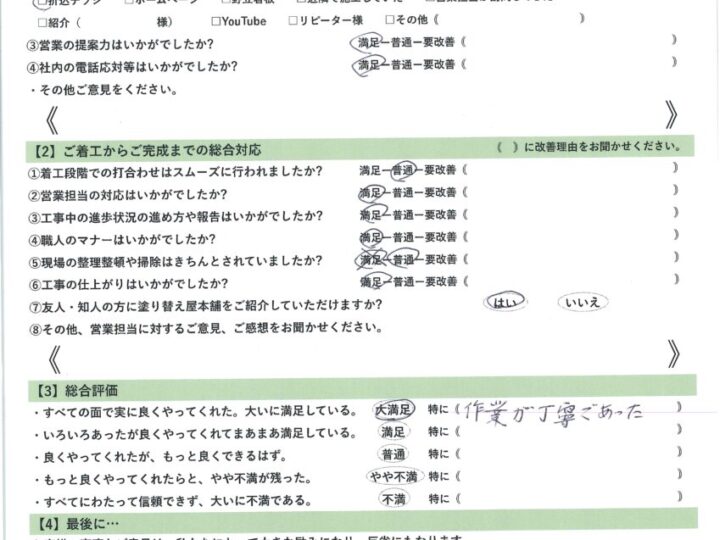 □紹介（　　　　　　様）　□YouTube　□リピーター様　□その他《　　　　　　》
③営業の提案力はいかがでしたか？　満足ー普通ー要改善《　　　　　　》
④社内の電話応対等はいかがでしたか？　満足ー普通ー要改善《　　　　　　》
・その他ご意見をください。
《　　　　　　》
【2】ご着工からご完成までの総合対応　《　》に改善理由をお聞かせください。
①着工段階での打合わせはスムーズに行われましたか？　満足ー普通ー要改善《　　　　　　》
②営業担当の対応はいかがでしたか？　満足ー普通ー要改善《　　　　　　》
③工事中の進歩状況の進め方や報告はいかがでしたか？　満足ー普通ー要改善《　　　　　　》
④職人のマナーはいかがでしたか？　満足ー普通ー要改善《　　　　　　》
⑤現場の整理整頓や掃除はきちんとされていましたか？　満足ー普通ー要改善《　　　　　　》
⑥工事の仕上がりはいかがでしたか？　満足ー普通ー要改善《　　　　　　》
⑦友人・知人の方に塗り替え屋本舗をご紹介していただけますか？　はい　いいえ
⑧その他、営業担当に対するご意見、ご感想をお聞かせください。
《　　　　　　》
【3】総合評価
・すべての面で実に良くやってくれた。大いに満足している。　大満足　特に《作業が丁寧であった》
・いろいろあったが良くやってくれてまあまあ満足している。　満足　特に《　　　　　　》
・良くやってくれたが、もっと良くできるはず。　普通　特に《　　　　　　》
・もっと良くやってくれたらと、やや不満が残った。　やや不満　特に《　　　　　　》
・すべてにわたって信頼できず、大いに不満である。　不満　特に《　　　　　　》
【4】最後に…